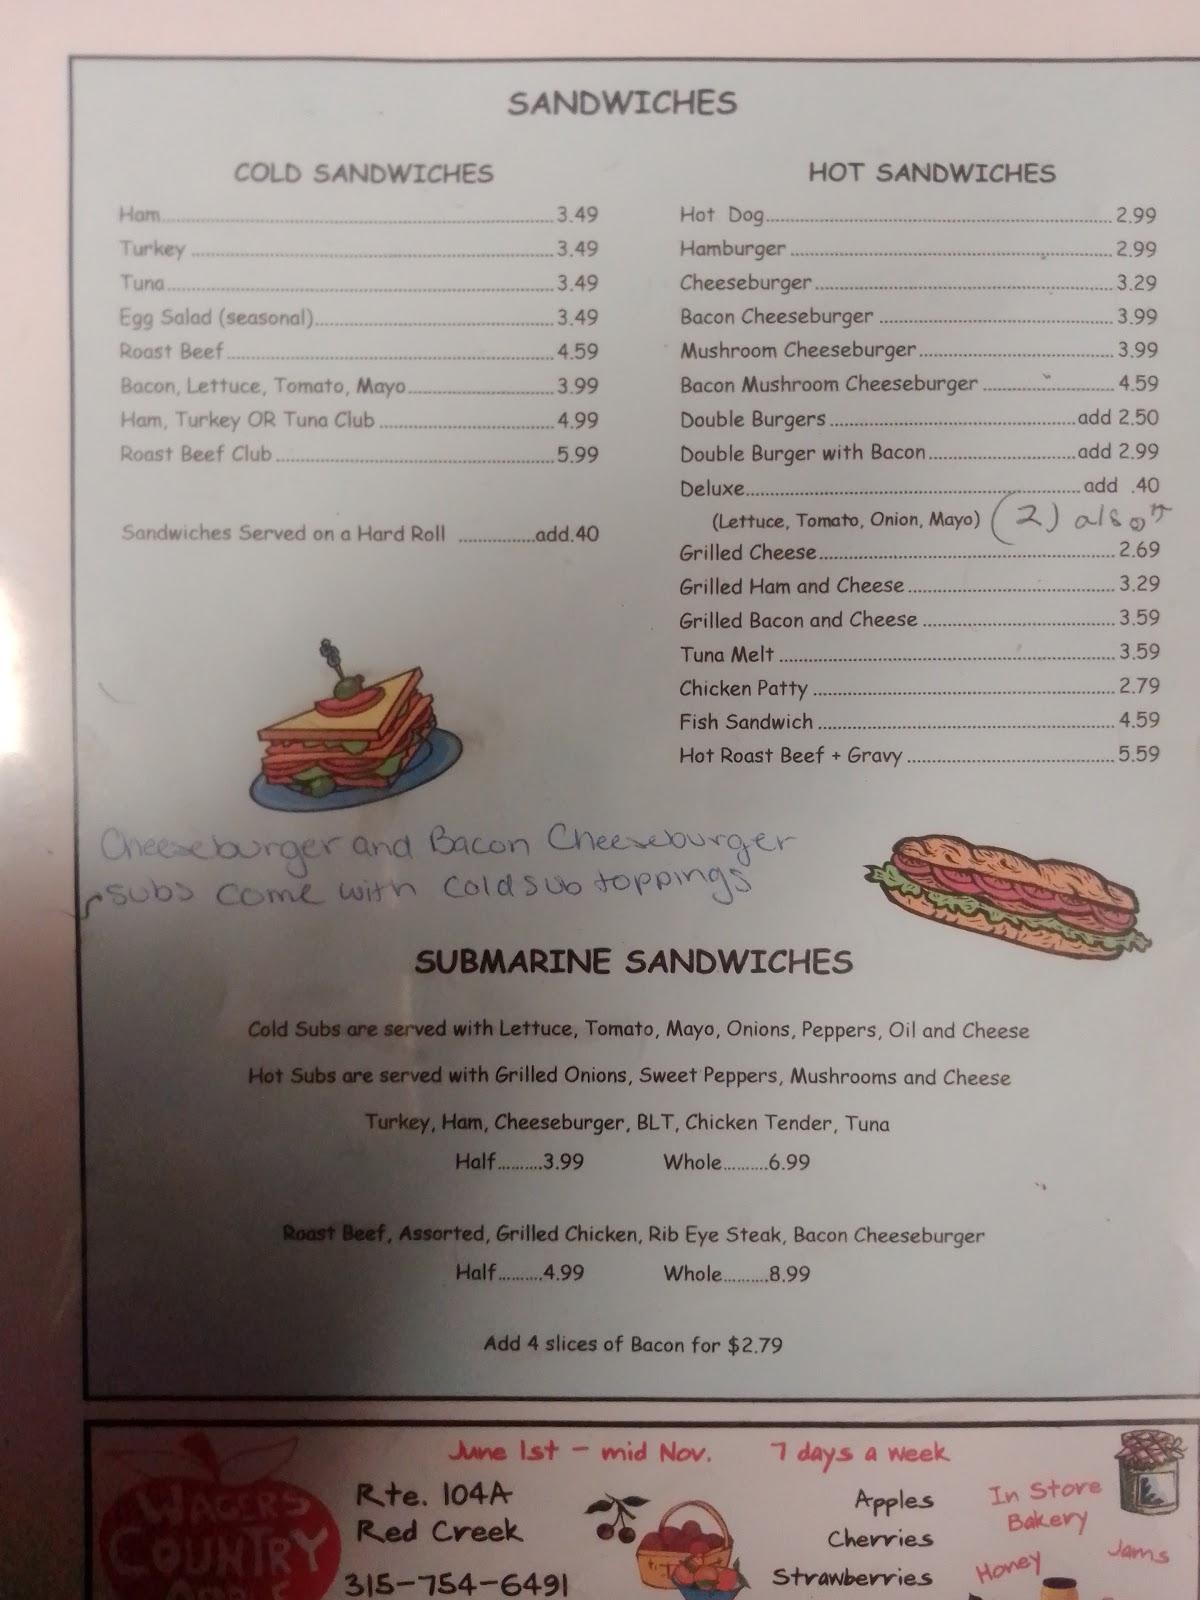 SANDWICHES
COLD SANDWICHES
Ham..........3.49
Turkey..........3.49
Tuna..........3.49
Egg Salad (seasonal)..........3.49
Roast Beef..........4.59
Bacon, Lettuce, Tomato, Mayo..........3.99
Ham, Turkey OR Tuna Club..........4.99
Roast Beef Club..........5.99
Sandwiches Served on a Hard Roll ..........add.40
HOT SANDWICHES
Hot Dog..........2.99
Hamburger..........2.99
Cheeseburger..........3.29
Bacon Cheeseburger..........3.99
Mushroom Cheeseburger..........3.99
Bacon Mushroom Cheeseburger..........4.59
Double Burgers..........add 2.50
Double Burger with Bacon..........add 2.99
Deluxe..........add .40
(Lettuce, Tomato, Onion, Mayo) (2)
Grilled Cheese..........2.69
Grilled Ham and Cheese..........3.29
Grilled Bacon and Cheese..........3.59
Tuna Melt..........3.59
Chicken Patty..........2.79
Fish Sandwich..........4.59
Hot Roast Beef + Gravy..........5.59
Cheeseburger and Bacon Cheeseburger
subs come with cold sub toppings
SUBMARINE SANDWICHES
Cold Subs are served with Lettuce, Tomato, Mayo, Onions, Peppers, Oil and Cheese
Hot Subs are served with Grilled Onions, Sweet Peppers, Mushrooms and Cheese
Turkey, Ham, Cheeseburger, BLT, Chicken Tender, Tuna
Half..........3.99 Whole.........6.99
Roast Beef, Assorted, Grilled Chicken, Rib Eye Steak, Bacon Cheeseburger
Half..........4.99 Whole.........8.99
Add 4 slices of Bacon for $2.79
June 1st - mid Nov. 7 days a week
WAGERS
COUNTRY
Rte. 104A
Red Creek
315-754-6491
Apples
Cherries
Strawberries
In Store
Bakery
Honey
Jams